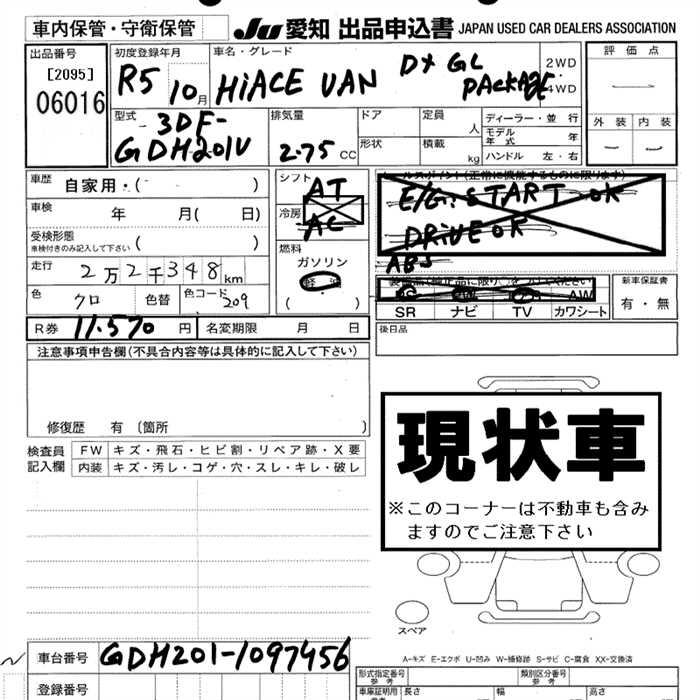 車内保管・守衛保管
JU 愛知 出品申込書 JAPAN USED CAR DEALERS ASSOCIATION
出品番号
[2095]
06016
初度登録年月
R5 10月
車名・グレード
HiACE VAN DX GL PACKAGE
2WD
・
4WD
評価点
外装 内装
型式
3DF-
GDH201V
排気量
2.75 CC
ドア
定員
人
形状
積載
kg
ディーラー・並行
モデル年式 年
ハンドル 左・右
車歴 自家用・( )
車検 年 月( 日)
受検形態
車検付きのみ記入して下さい ( )
走行 2万2千348km
色 クロ 色替 色コード 209
シフト AT
冷房 AC
燃料
ガソリン
( )
セールスポイント(正常に機能するものに限る)
E/G:START OK
DRiVE OK
ABS
SR ナビ TV カワシート
新車保証書
有・無
R券 11.570 円 名変期限 月 日
後日品
注意事項申告欄(不具合内容等は具体的に記入して下さい)
修復歴 有 〔箇所 〕
検査員
記入欄
FW キズ・飛石・ヒビ割・リペア跡・X要
内装 キズ・汚レ・コゲ・穴・スレ・キレ・破レ
現状車
※このコーナーは不動車も含み
ますのでご注意下さい
スペア
A-キズ E-エクボ U-凹み W-補修跡 S-サビ C-腐食 XX-交換済
車台番号 GDH201-1097456
登録番号
型式指定番号
参考
類別区分番号
参考
車庫証明用
参考
長さ 幅 高さ